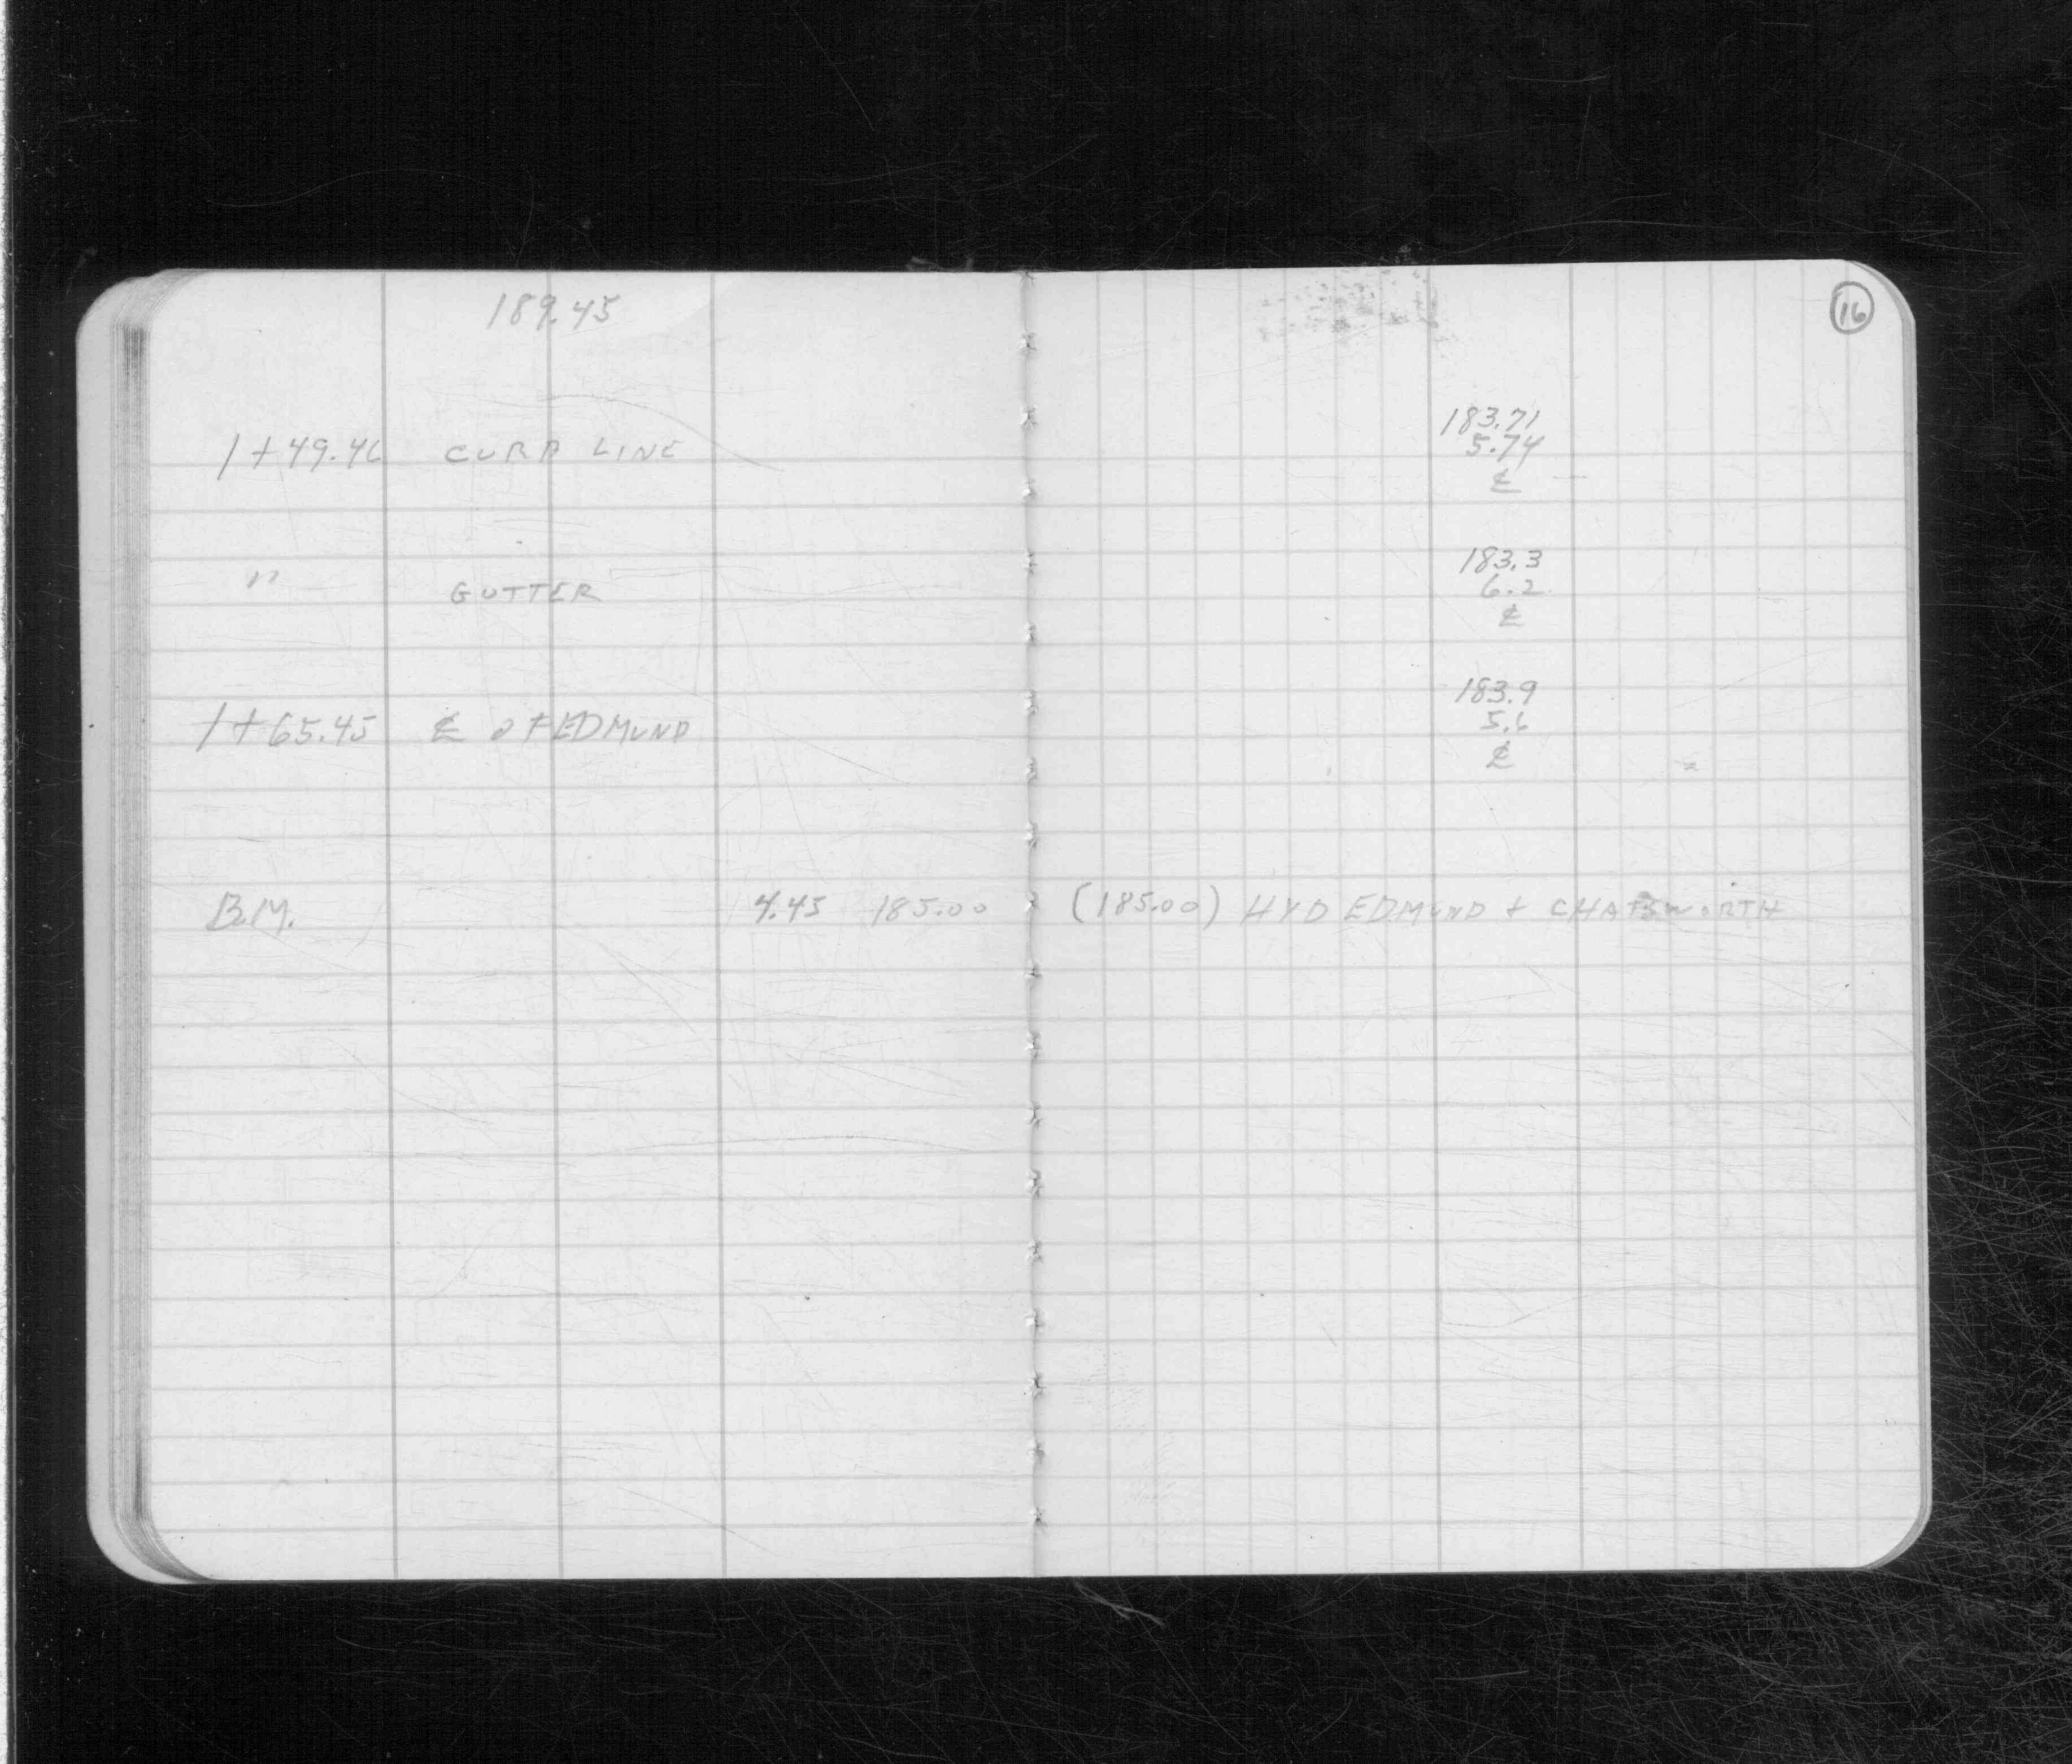 189.45
16
183.71
1+49.46 CURB LINE 5.74
℄
183.3
" GUTTER 6.2
℄
183.9
1+65.45 ℄ OF EDMUND 5.6
℄
B.M. 4.45 185.00 (185.00) HYD EDMUND + CHATSWORTH